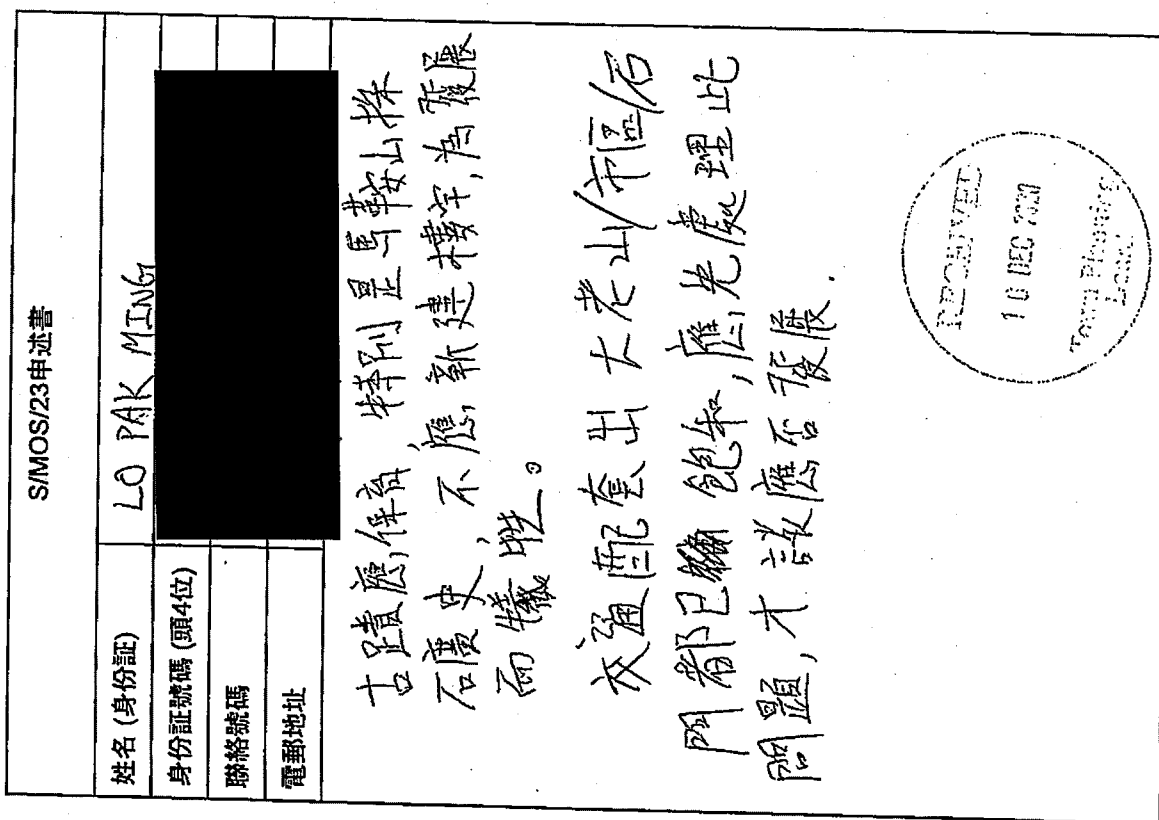 S/MOS/23申述書
姓名 (身份証)
LO PAK MING
身份証號碼 (頭4位)
聯絡號碼
電郵地址
古蹟應保育,特別是馬鞍山採
石歷史,不應新建樓宇,為發展
而犧牲。
交通配套出大老山/市區/石
門都已飽和,應先處理此
問題,才談應否發展.
RECEIVED
10 DEC 2020
Town Planning
Board